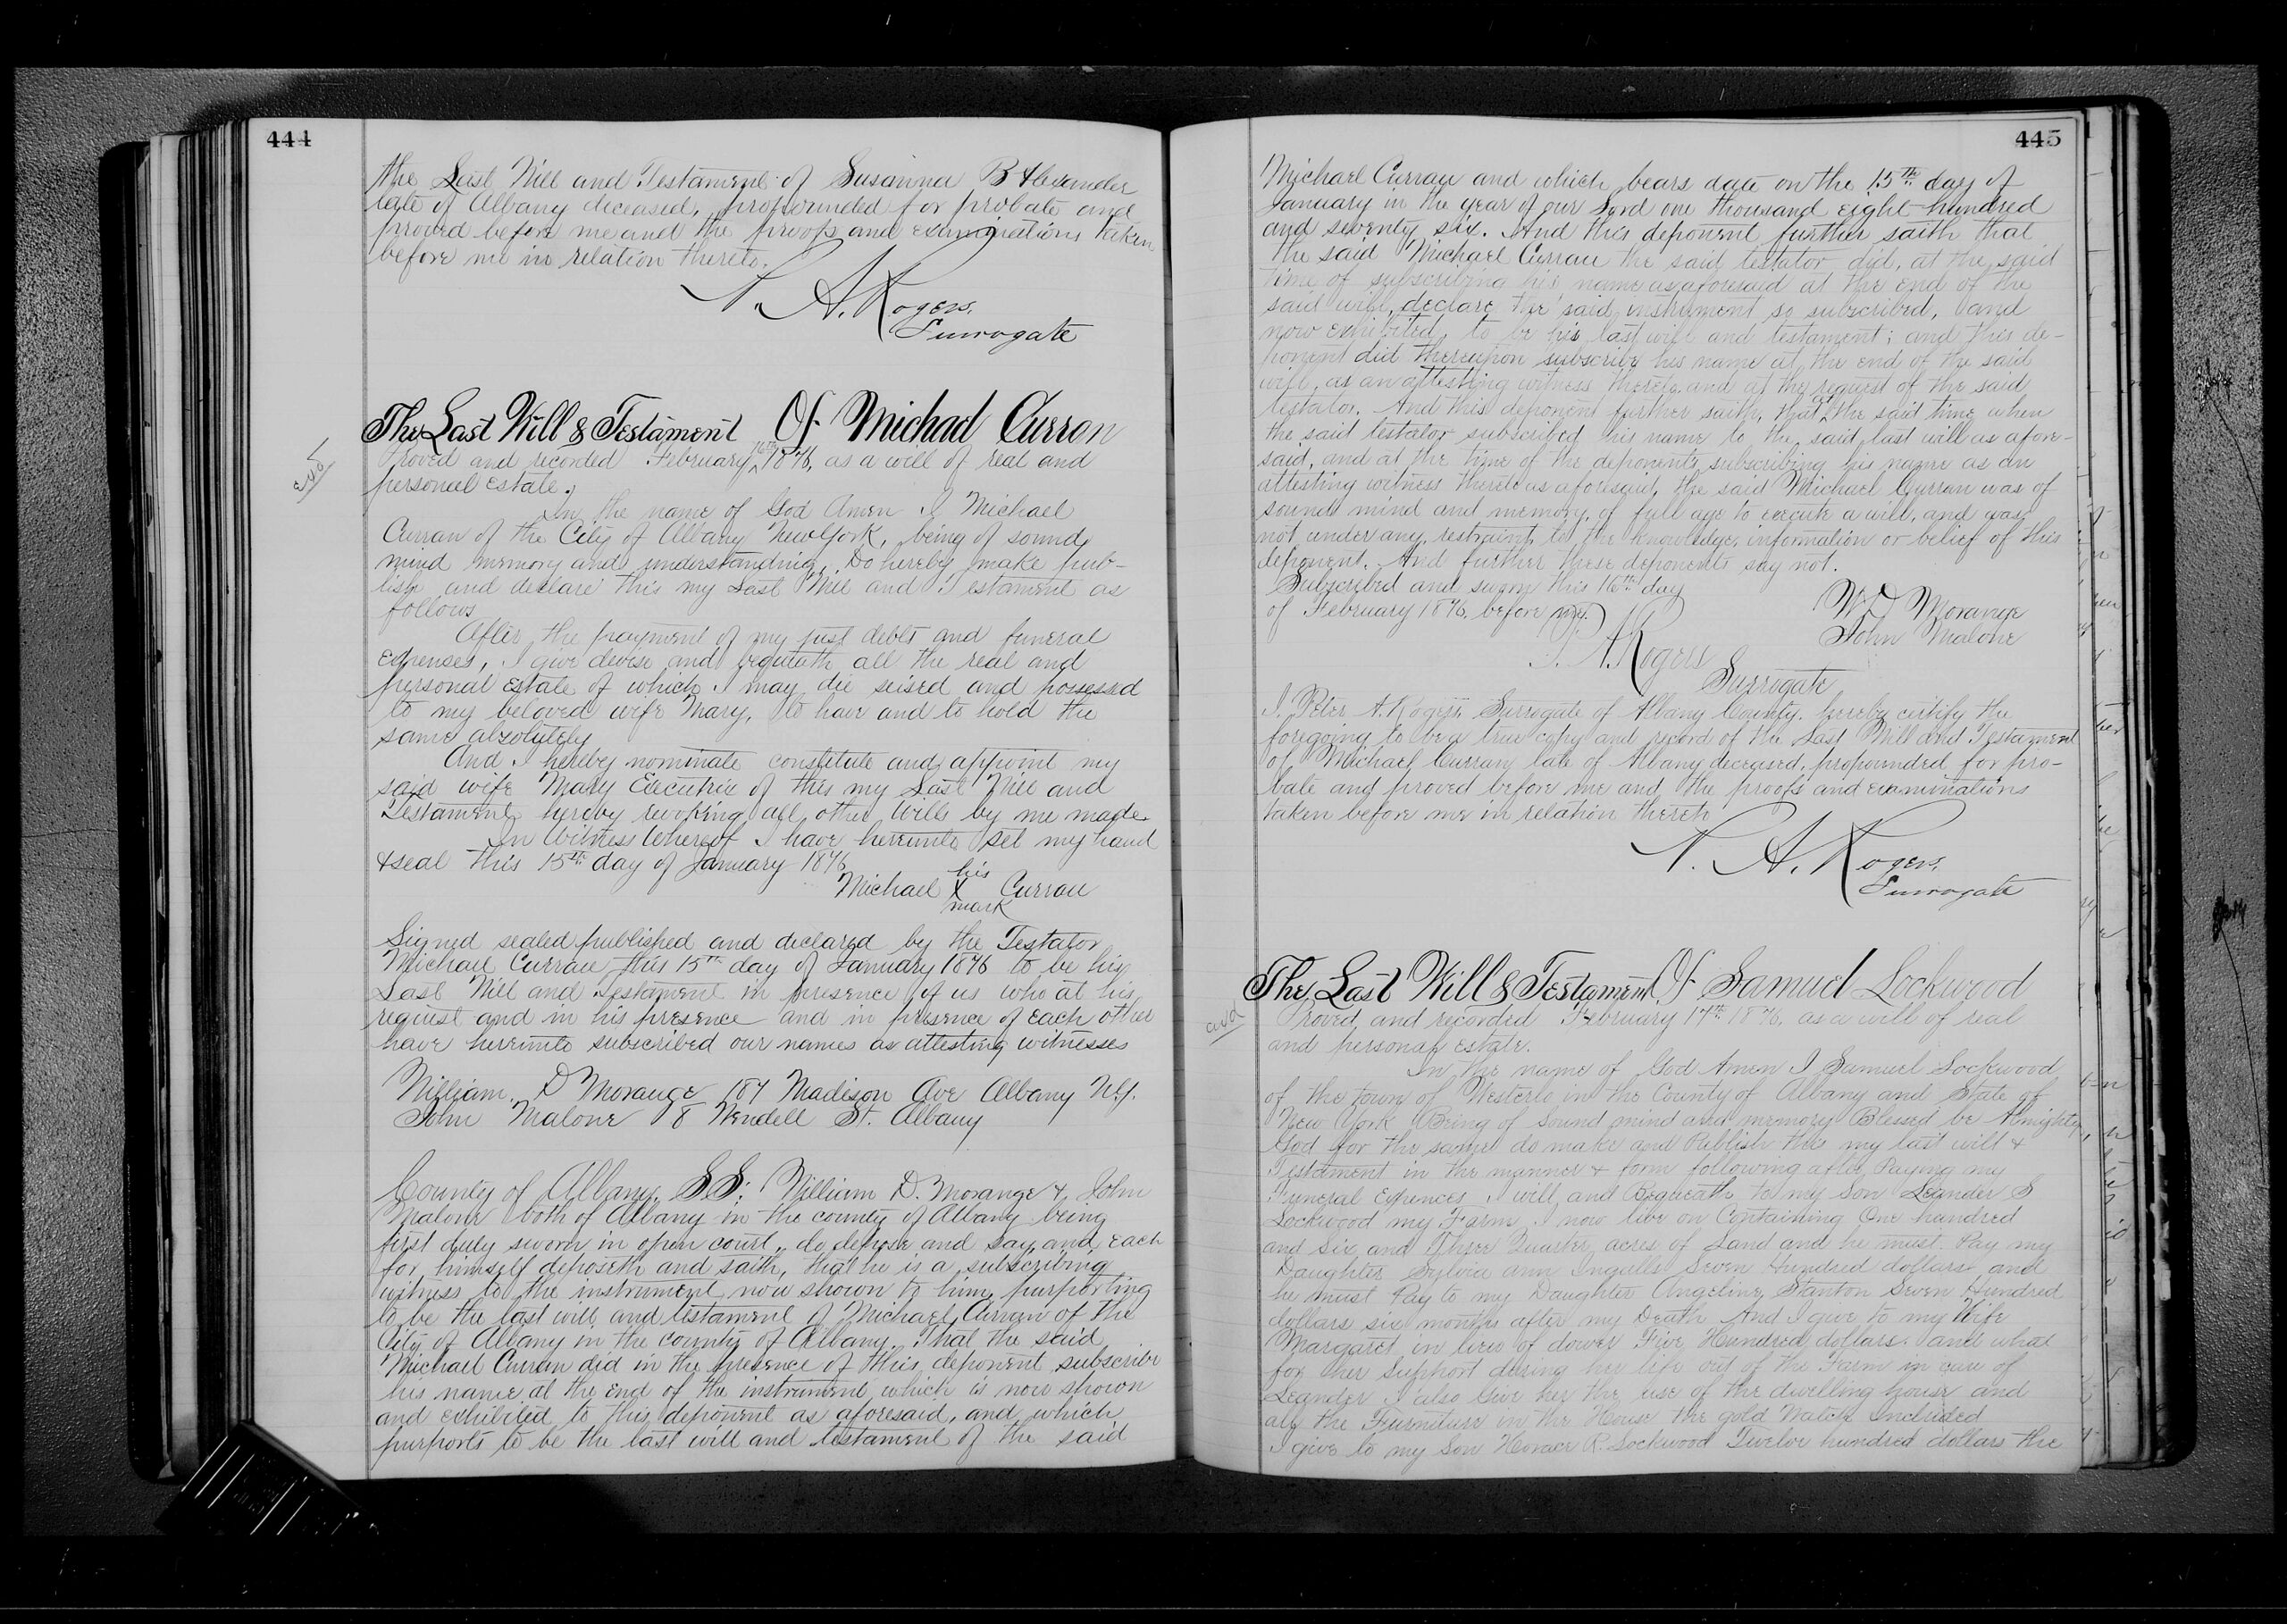 444
the Last Will and Testament of Susanna B Alexander
late of Albany deceased, propounded for probate and
proved before me and the proofs and examinations taken
before me in relation thereto.
P. A. Rogers,
Surrogate
The Last Will & Testament Of Michael Curran
Proved and recorded February 16th 1876, as a will of real and
personal estate.
In the name of God Amen I Michael
Curran of the City of Albany New York, being of sound
mind memory and understanding, Do hereby make pub-
lish and declare this my Last Will and Testament as
follows
After the payment of my just debts and funeral
expenses, I give devise and bequeath all the real and
personal estate of which I may die seised and possessed
to my beloved wife Mary, to have and to hold the
same absolutely
And I hereby nominate constitute and appoint my
said wife Mary Executrix of this my Last Will and
Testament hereby revoking all other Wills by me made.
In Witness Whereof I have hereunto set my hand
& seal this 15th day of January 1876
his
Michael X Curran
mark
Signed sealed published and declared by the Testator
Michael Curran this 15th day of January 1876 to be his
Last Will and Testament in presence of us who at his
request and in his presence and in presence of each other
have hereunto subscribed our names as attesting witnesses
William. D Morange 187 Madison Ave Albany N.Y.
John Malone 8 Wendell St. Albany
County of Albany, SS: William D. Morange & John
Malone both of Albany in the county of Albany being
first duly sworn in open court, do depose and say, and each
for himself deposeth and saith, that he is a subscribing
witness to the instrument now shown to him, purporting
to be the last will and testament of Michael Curran of the
City of Albany in the county of Albany. That the said
Michael Curran did in the presence of this deponent subscribe
his name at the end of the instrument which is now shown
and exhibited to this deponent as aforesaid, and which
purports to be the last will and testament of the said
445
Michael Curran and which bears date on the 15th day of
January in the year of our Lord one thousand eight hundred
and seventy six. And this deponent further saith that
the said Michael Curran the said testator did, at the said
time of subscribing his name as aforesaid at the end of the
said will, declare the said instrument so subscribed, and
now exhibited, to be his last will and testament; and this de-
ponent did thereupon subscribe his name at the end of the said
will, as an attesting witness thereto and at the request of the said
testator. And this deponent further saith, that at the said time when
the said testator subscribed his name to the said last will as afore-
said, and at the time of the deponents subscribing his name as an
attesting witness thereto as aforesaid, the said Michael Curran was of
sound mind and memory, of full age to execute a will, and was
not under any restraint, to the knowledge, information or belief of this
deponent. And further these deponents say not.
Subscribed and sworn this 16th day
of February 1876, before me.
W. D Morange
John Malone
P. A. Rogers
Surrogate
I. Peter A. Rogers, Surrogate of Albany County, hereby certify the
foregoing to be a true copy and record of the Last Will and Testament
of Michael Curran late of Albany deceased, propounded for pro-
bate and proved before me and the proofs and examinations
taken before me in relation thereto
P. A. Rogers,
Surrogate
The Last Will & Testament Of Samuel Lockwood
Proved and recorded February 17th 1876, as a will of real
and personal estate.
In the name of God Amen I Samuel Lockwood
of the town of Westerlo in the County of Albany and State of
New York Being of Sound mind and memory Blessed be Almighty
God for the same do make and Publish this my last will &
Testament in the manner & form following after Paying my
Funeral Expences I will and Bequeath to my Son Leander S
Lockwood my Farm I now live on Containing One hundred
and Six and Three Quarter acres of Land and he must Pay my
Daughter Sylvia ann Ingalls Seven Hundred dollars and
he must Pay to my Daughter Angeline Stanton Seven Hundred
dollars six months after my Death And I give to my Wife
Margaret in lieu of dower Five Hundred dollars. and what
for her Support during her life out of the Farm in care of
Leander I also Give her the use of the dwelling house and
all the Furniture in the House the gold Watch Included
I give to my Son Horace R. Lockwood Twelve hundred dollars the